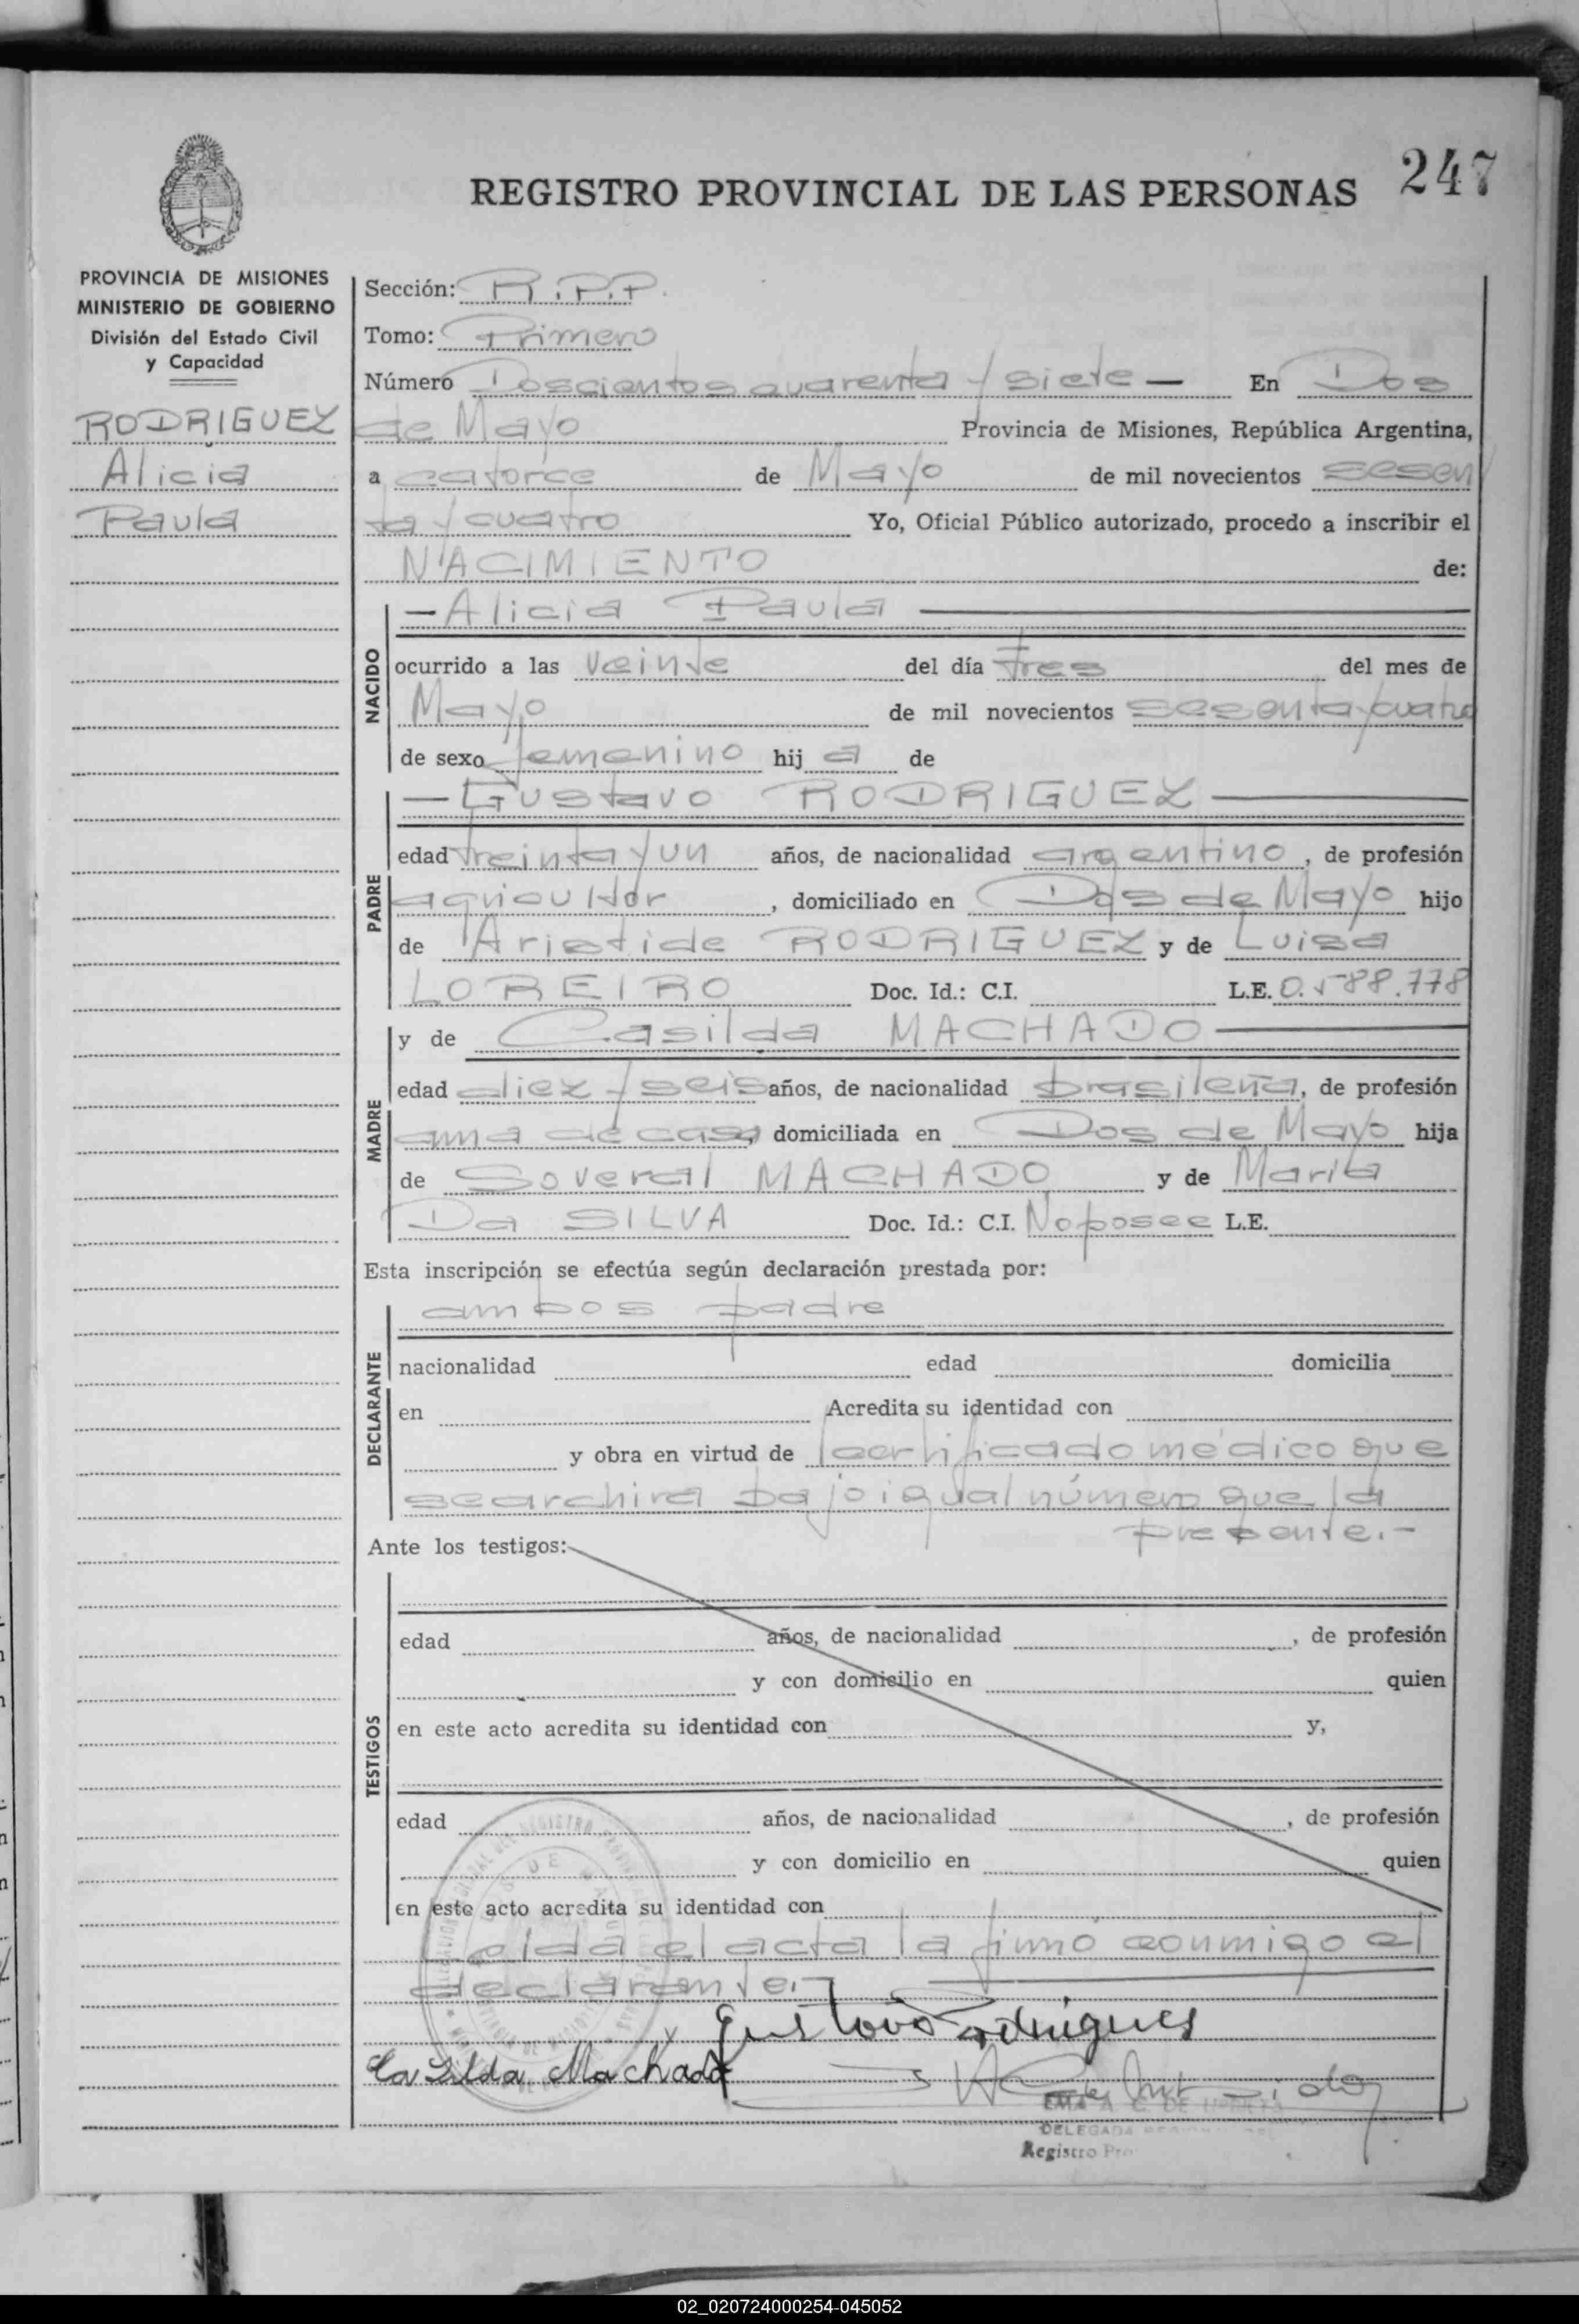 247
REGISTRO PROVINCIAL DE LAS PERSONAS
PROVINCIA DE MISIONES
MINISTERIO DE GOBIERNO
División del Estado Civil
y Capacidad
RODRIGUEZ
Alicia
Paula
Sección: R.P.P.
Tomo: Primero
Número Doscientos cuarenta y siete — En Dos
de Mayo Provincia de Misiones, República Argentina,
a catorce de Mayo de mil novecientos sesen
ta y cuatro Yo, Oficial Público autorizado, procedo a inscribir el
NACIMIENTO de:
NACIDO
— Alicia Paula —
ocurrido a las veinte del día tres del mes de
Mayo de mil novecientos sesenta y cuatro
de sexo femenino hij a de
PADRE
— Gustavo RODRIGUEZ —
edad treinta y un años, de nacionalidad argentino, de profesión
agricultor, domiciliado en Dos de Mayo hijo
de Aristide RODRIGUEZ y de Luisa
LOREIRO Doc. Id.: C.I. L.E. 0.588.778
MADRE
y de Casilda MACHADO —
edad diez y seis años, de nacionalidad brasileña, de profesión
ama de casa, domiciliada en Dos de Mayo hija
de Soveral MACHADO y de Maria
Da SILVA Doc. Id.: C.I. No posee L.E.
Esta inscripción se efectúa según declaración prestada por:
DECLARANTE
ambos padre
nacionalidad edad domicilia
en Acredita su identidad con
y obra en virtud de certificado médico que
se archiva bajo igual número que la
presente.-
Ante los testigos:
TESTIGOS
edad años, de nacionalidad , de profesión
y con domicilio en quien
en este acto acredita su identidad con y,
edad años, de nacionalidad , de profesión
y con domicilio en quien
en este acto acredita su identidad con
Leida el acta la firmó conmigo el
declarante.-
Gustavo Rodrigues
Casilda Machado
EMA A. C. DE
DELEGADA
Registro
02_020724000254-045052